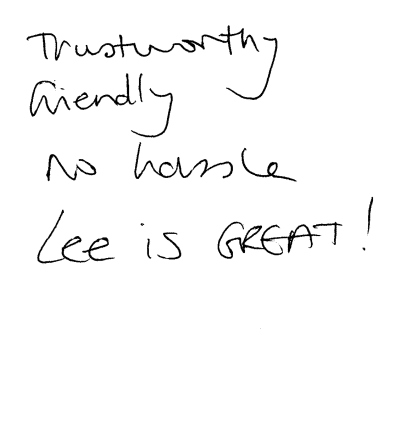 Trustworthy
friendly
no hassle
Lee is GREAT!